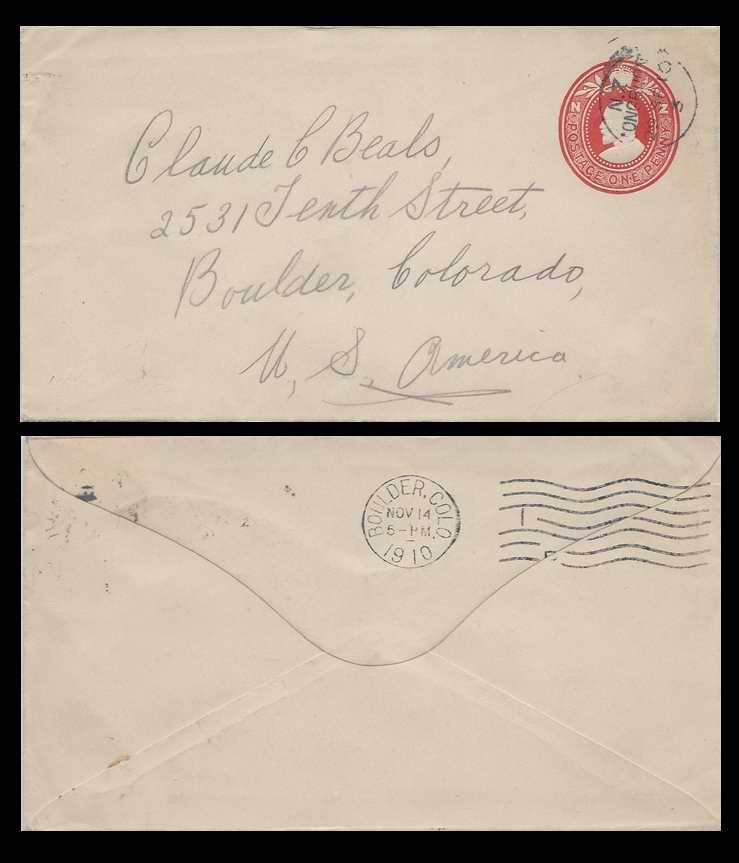 Claude C Beals,
2531 Tenth Street,
Boulder, Colorado,
U, S, America
N.Z POSTAGE·ONE·PENNY N.Z
BOULDER, COLO
NOV 14
5-PM,
1910